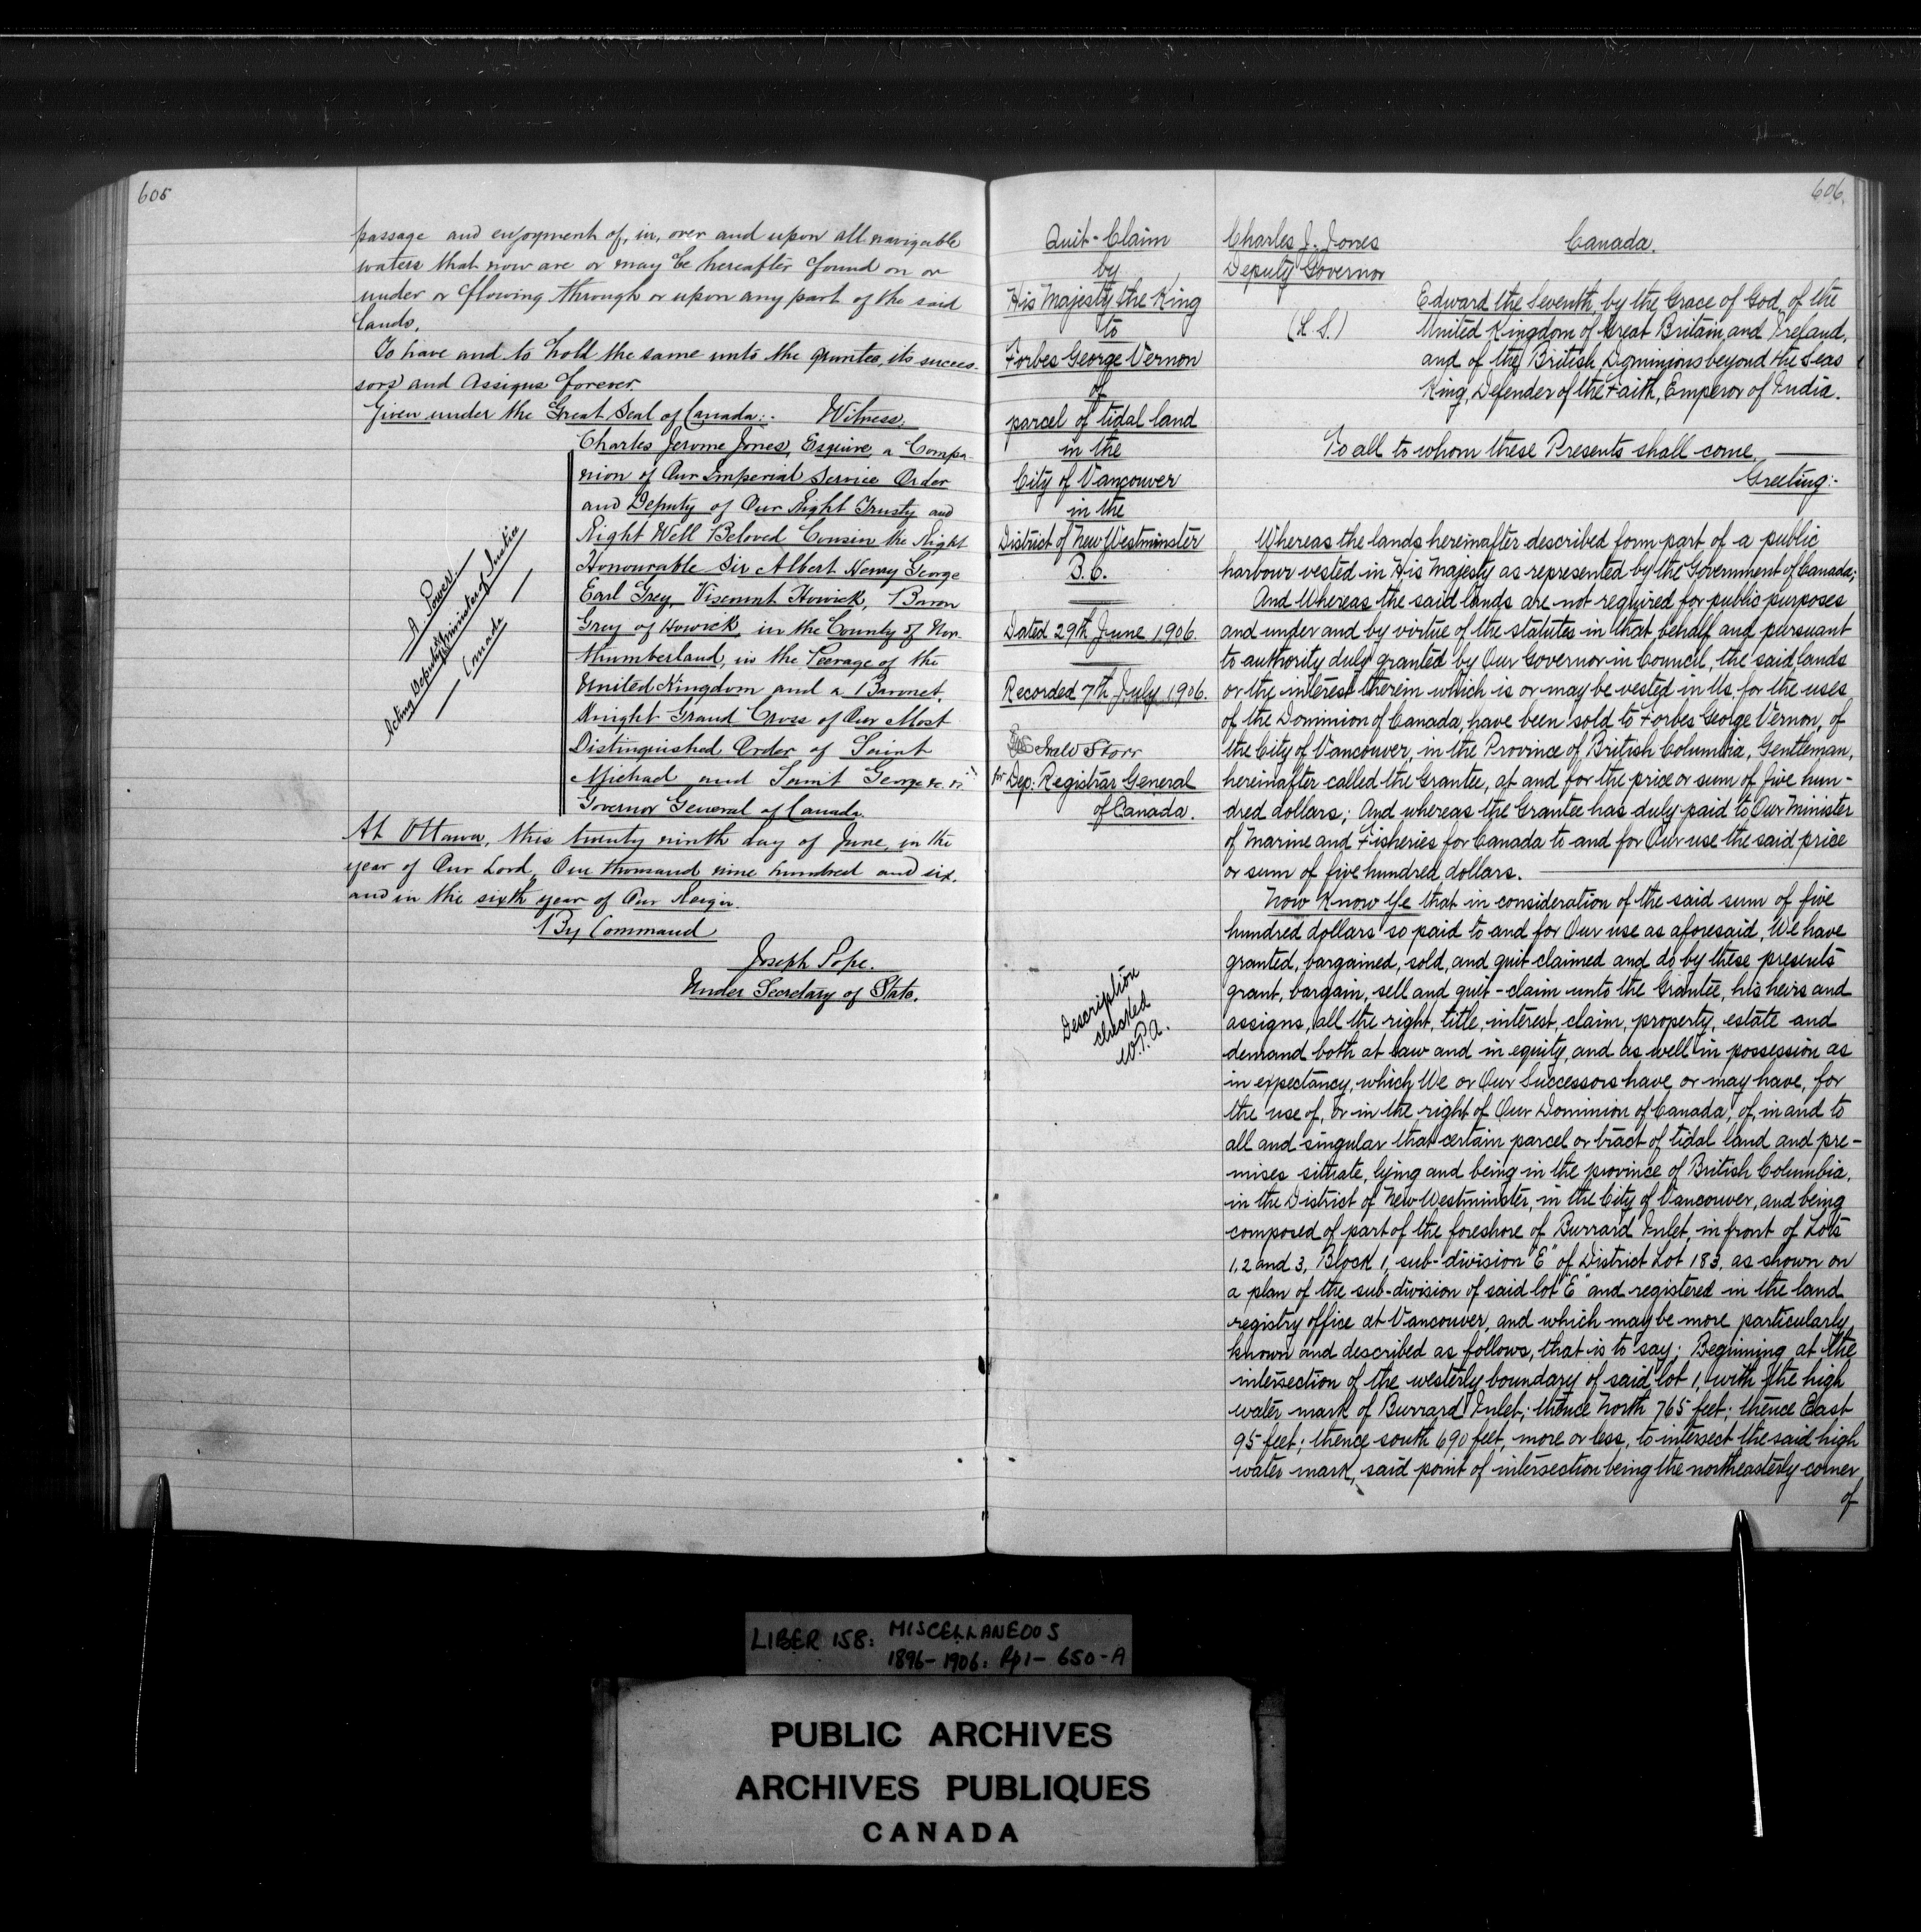 605
passage and enjoyment of, in, over and upon all navigable
waters that now are or may be hereafter found on or
under or flowing through or upon any part of the said
lands.
To have and to hold the same unto the grantee, its succes-
sors and assigns forever.
Given under the Great Seal of Canada:- Witness,
Charles Jerome Jones, Esquire, a Compa-
nion of Our Imperial Service Order
and Deputy of Our Right Trusty and
Right Well Beloved Cousin the Right
Honourable Sir Albert Henry George
Earl Grey, Viscount Howick, Baron
Grey of Howick, in the County of Nor-
thumberland, in the Peerage of the
United Kingdom and a Baronet,
Knight Grand Cross of Our Most
Distinguished Order of Saint
Michael and Saint George &c. &c.
Governor General of Canada.
A. Power.
Acting Deputy Minister of Justice
Canada
At Ottawa, this twenty ninth day of June, in the
year of Our Lord, One thousand nine hundred and six,
and in the sixth year of Our Reign.
By Command
Joseph Pope.
Under Secretary of State.
606.
Quit-Claim
by
His Majesty the King
to
Forbes George Vernon
of
parcel of tidal land
in the
City of Vancouver
in the
District of New Westminster
B.C.
Dated 29th June 1906.
Recorded 7th July 1906.
Storr
for Dep: Registrar General
of Canada.
Description
checked
W.P.A.
Charles J. Jones
Deputy Governor
Canada.
(L.S.)
Edward the Seventh, by the Grace of God, of the
United Kingdom of Great Britain and Ireland,
and of the British Dominions beyond the Seas
King, Defender of the Faith, Emperor of India.
To all to whom these Presents shall come,
Greeting:-
Whereas the lands hereinafter described form part of a public
harbour vested in His Majesty as represented by the Government of Canada;
And Whereas the said lands are not required for public purposes
and under and by virtue of the statutes in that behalf and pursuant
to authority duly granted by Our Governor in Council, the said lands
or the interest therein which is or may be vested in Us, for the uses
of the Dominion of Canada, have been sold to Forbes George Vernon, of
the City of Vancouver, in the Province of British Columbia, Gentleman,
hereinafter called the Grantee, at and for the price or sum of five hun-
dred dollars; And whereas the Grantee has duly paid to Our Minister
of Marine and Fisheries for Canada to and for Our use the said price
or sum of five hundred dollars.
Now Know Ye that in consideration of the said sum of five
hundred dollars so paid to and for Our use as aforesaid, We have
granted, bargained, sold, and quit claimed and do by these presents
grant, bargain, sell and quit-claim unto the Grantee, his heirs and
assigns, all the right, title, interest, claim, property, estate and
demand both at law and in equity, and as well in possession as
in expectancy, which We or Our Successors have or may have, for
the use of, or in the right of Our Dominion of Canada, of, in and to
all and singular that certain parcel or tract of tidal land and pre-
mises situate, lying and being in the province of British Columbia,
in the District of New Westminster, in the City of Vancouver, and being
composed of part of the foreshore of Burrard Inlet, in front of Lots
1, 2 and 3, Block 1, sub-division "E" of District Lot 183, as shown on
a plan of the sub-division of said lot "E" and registered in the land
registry office at Vancouver, and which may be more particularly
known and described as follows, that is to say; Beginning at the
intersection of the westerly boundary of said lot 1, with the high
water mark of Burrard Inlet; thence North 765 feet; thence East
95 feet; thence south 690 feet, more or less, to intersect the said high
water mark, said point of intersection being the northeasterly corner
of
LIBER 158: MISCELLANEOUS
1896-1906: Pp 1-650-A
PUBLIC ARCHIVES
ARCHIVES PUBLIQUES
CANADA